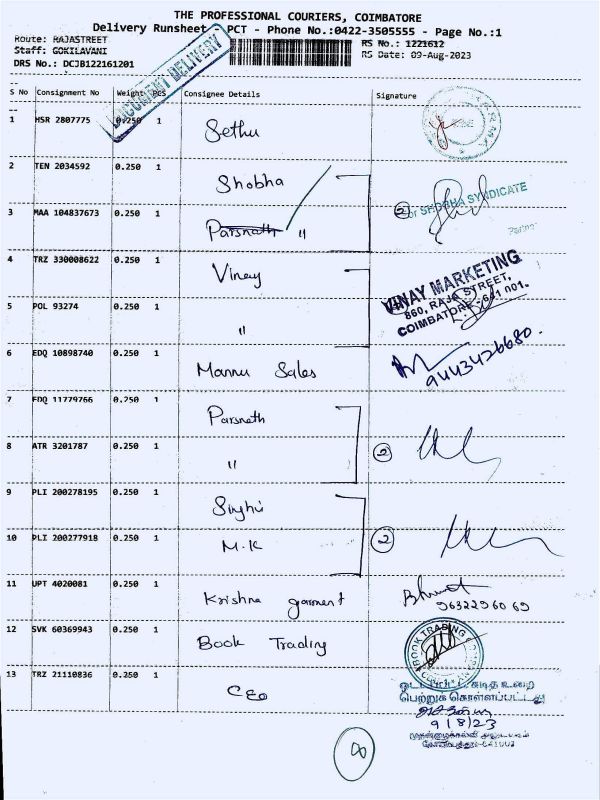 THE PROFESSIONAL COURIERS, COIMBATORE
Delivery Runsheet - PCT - Phone No.:0422-3505555 - Page No.:1
Route: RAJASTREET
RS No.: 1221612
Staff: GOKILAVANI
RS Date: 09-Aug-2023
DRS No.: DCJB122161201
DOCUMENT DELIVERY
S No Consignment No Weight Pcs Consignee Details Signature
1 HSR 2807775 0.250 1 Sethu
2 TEN 2034592 0.250 1 Shobha
For SHOBHA SYNDICATE
3 MAA 104837673 0.250 1 Parsnath " 2
4 TRZ 330008622 0.250 1 Vinay
VINAY MARKETING
860, RAJA STREET,
COIMBATORE - 641 001.
5 POL 93274 0.250 1 "
6 EDQ 10898740 0.250 1 Mannu Sales
9443426680.
7 EDQ 11779766 0.250 1 Parsnath
8 ATR 3201787 0.250 1 " 2
9 PLI 200278195 0.250 1 Singhvi
10 PLI 200277918 0.250 1 M.K 2
11 UPT 4020081 0.250 1 Krishna garment Bharat
9632296069
12 SVK 60369943 0.250 1 Book Trading
BOOK TRADING
13 TRZ 21110836 0.250 1 CEO
கடித உறை
பெற்றுக் கொள்ளப்பட்டது
9/8/23
8